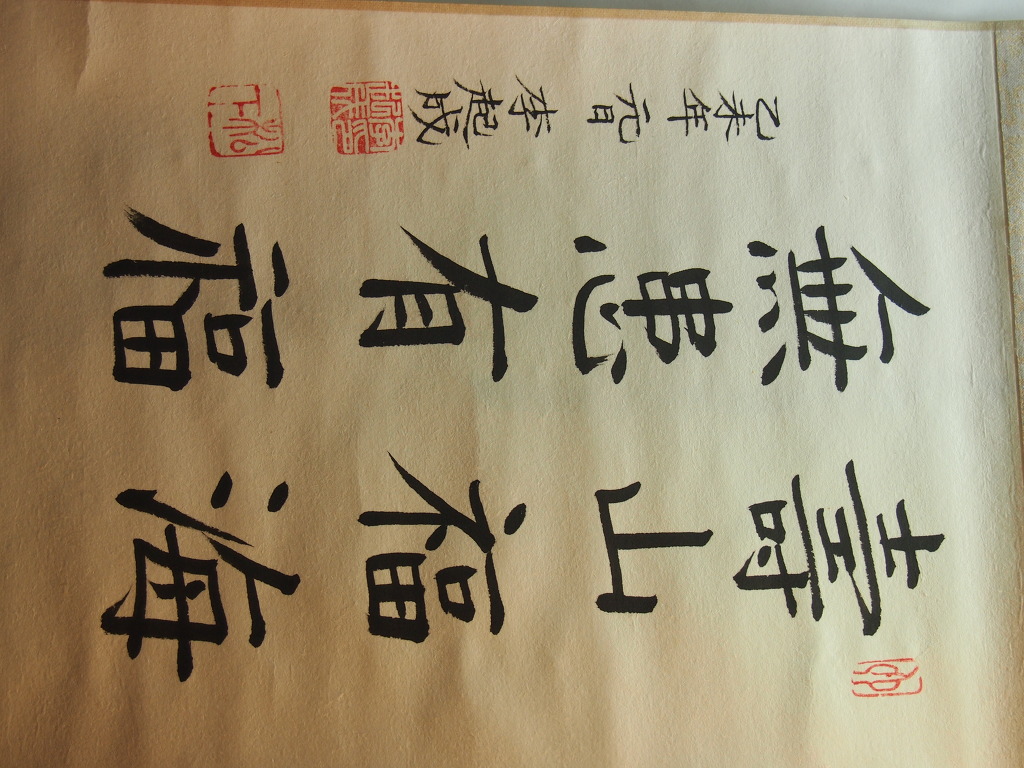 壽山福海
無患有福
乙未年元日 李起成